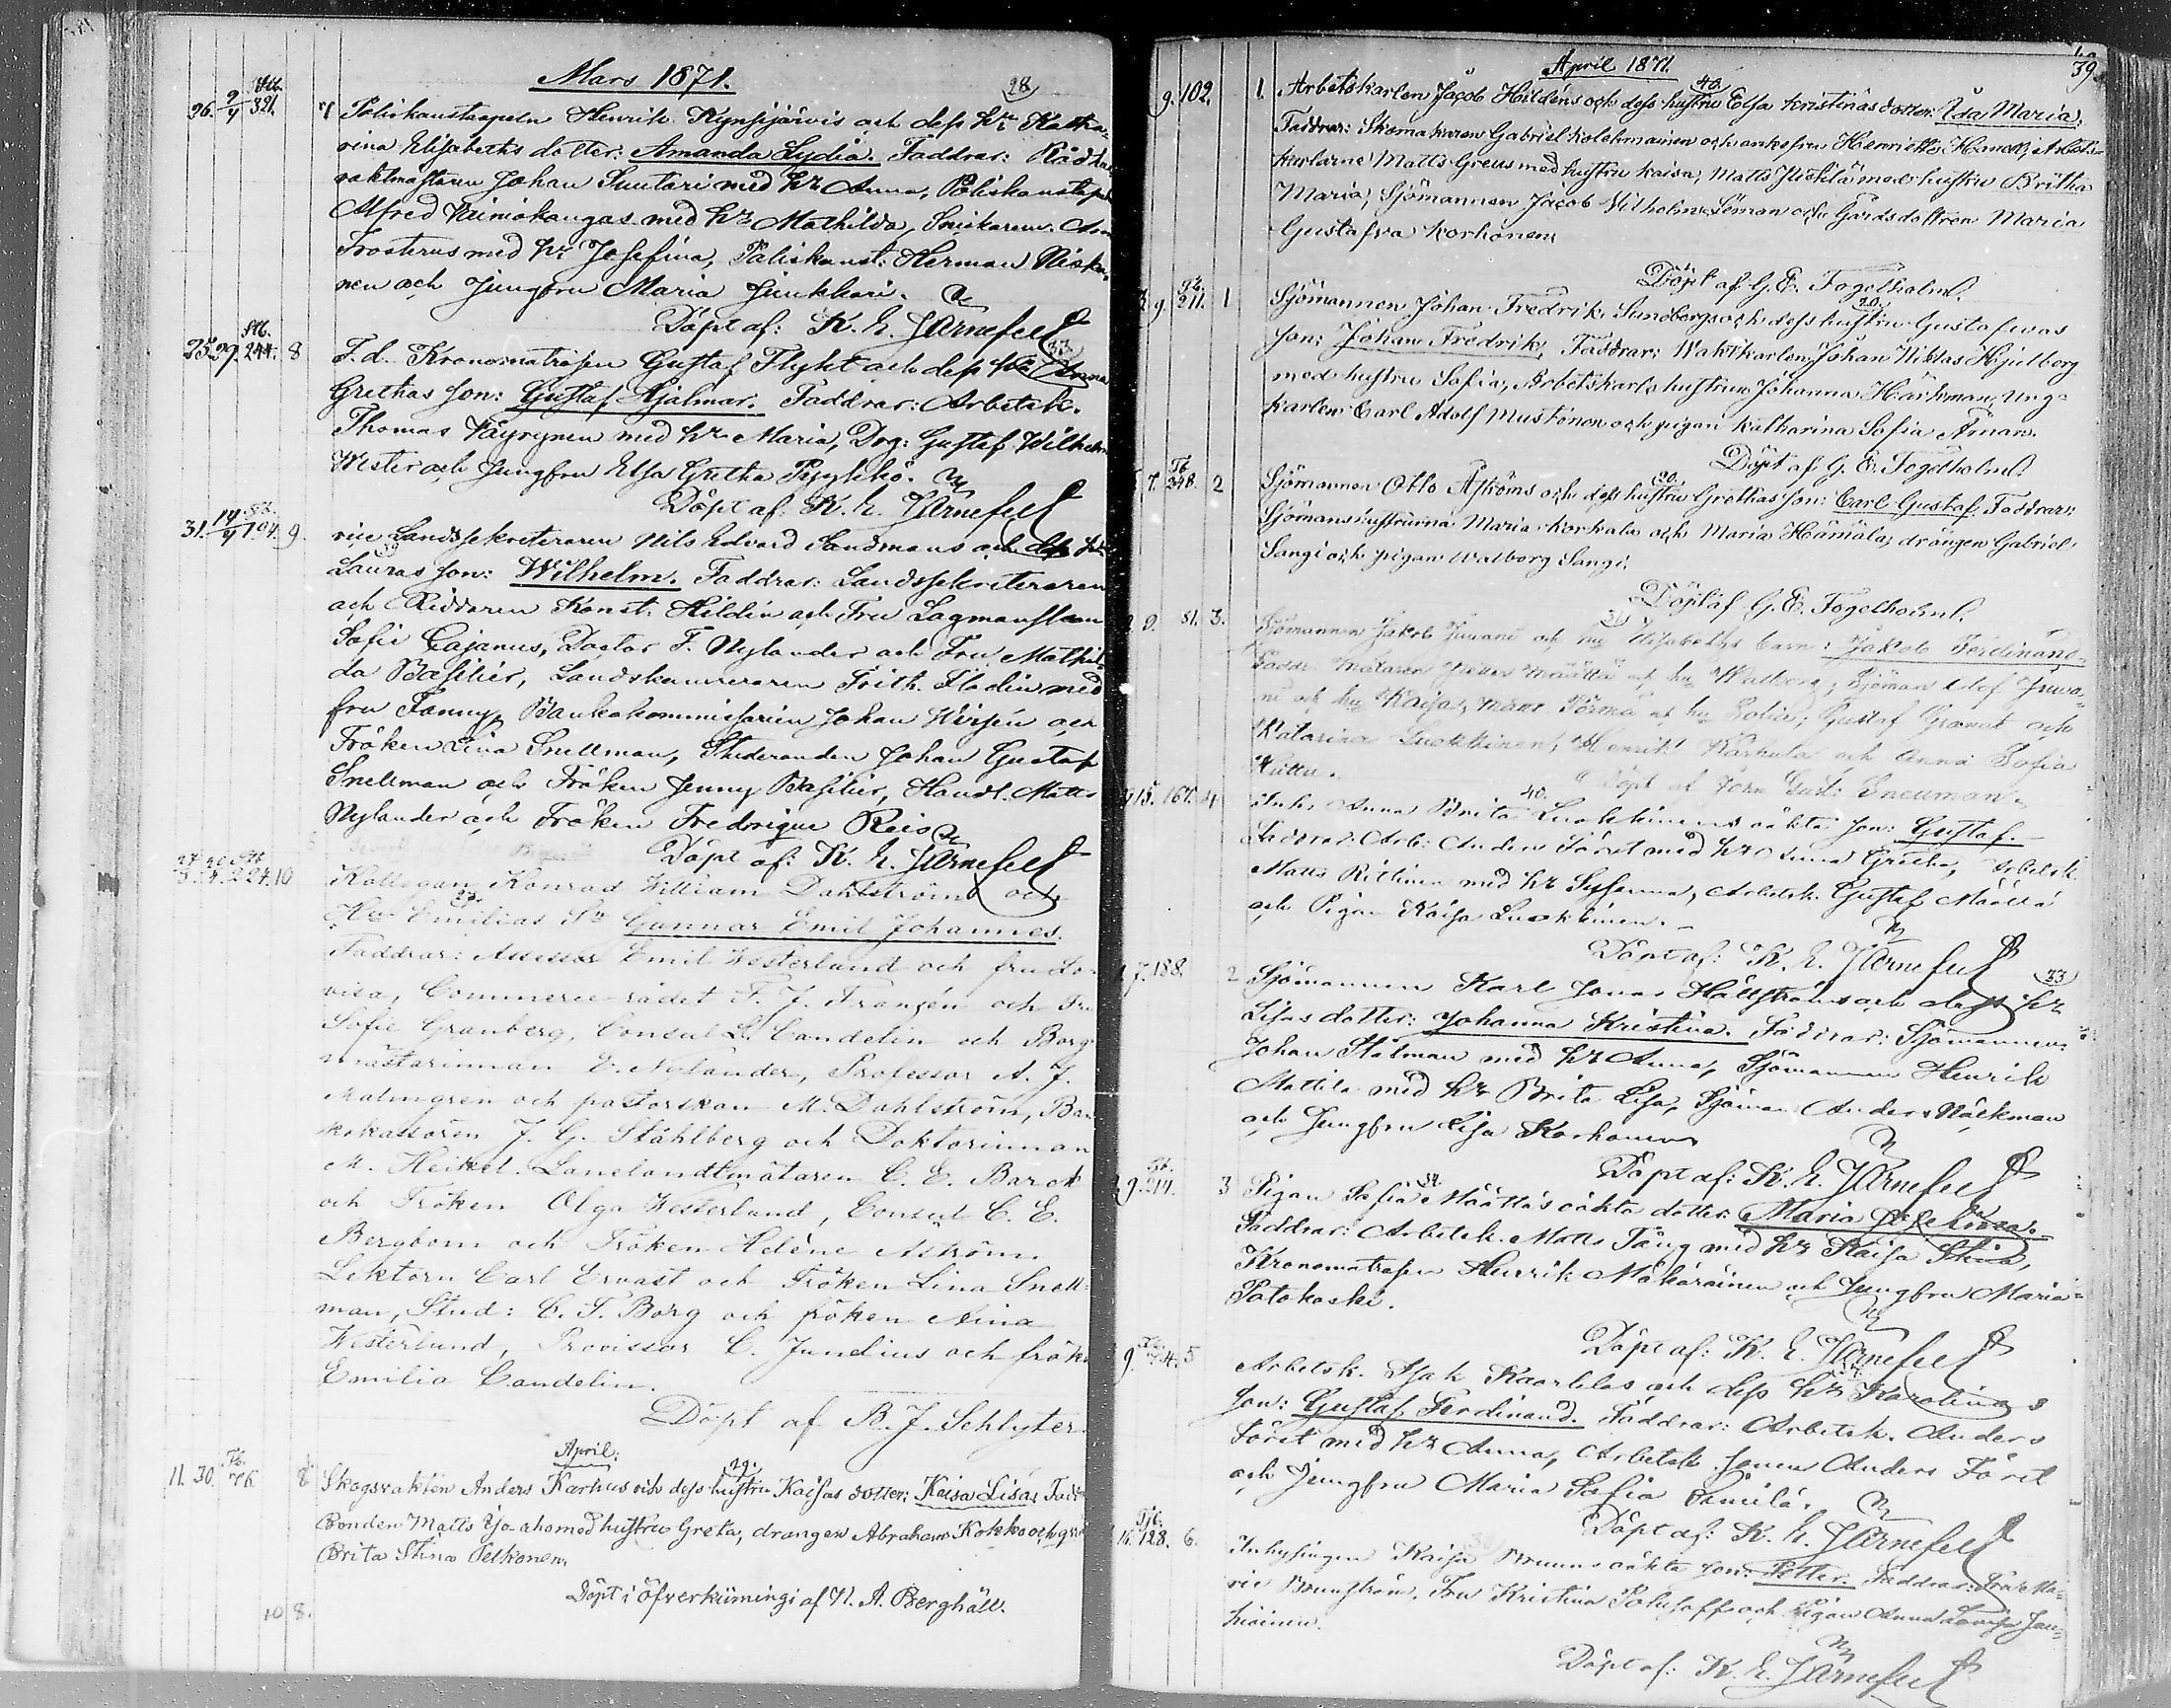 Mars 1871.
28
26. 2/4 Stb. 321. 7 Poliskonstapeln Henrik Kynsijärvis och dess hu Katha-
rina Elisabeths dotter: Amanda Lydia. Faddrar: Rådhus
vaktmästaren Johan Suutari med hu Anna, Poliskonstapel
Alfred Vainiokangas med hu Mathilda, Snickaren
Frosterus med hu Josefina, Poliskonst. Herman Niska-
nen och Jungfru Maria Junkkari.
Döpt af: K. E. Järnefelt
25. 29. Stb. 244. 8 F. d. Kronomatrosen Gustaf Flykt och dess hu Anna 33
Grethas son: Gustaf Hjalmar. Faddrar: Arbetsk.
Thomas Väyrynen med hu Maria, Drg: Gustaf Wilhelm
Wester och Jungfru Elsa Gretha Pyykkö.
Döpt af: K. E. Järnefelt
31. 14/4 194. 9. vice Landssekreteraren Nils Edvard Sandmans och dess
Lauras son: Wilhelm. Faddrar: Landssekreteraren
och Riddaren Konst. Hildén och Fru Lagmanskan
Sofie Cajanus, Doctor F. Nylander och Fru Mathil-
da Basilier, Landskamreraren Frith. Flodin med
fru Fanny, Bankokommissarien Johan Wirzén och
Fröken Lina Snellman, Studeranden Johan Gustaf
Snellman och Fröken Jenny Basilier, Handl. Matts
Nylander och Fröken Fredrique Reis
Döpt af: K. E. Järnefelt
224. 10 Kollegan Konrad William Dahlströms och
Hu Emilias Sn Gunnar Emil Johannes.
Faddrar: Assessor Emil Westerlund och fru Lo-
visa, Commercerådet F. J. Franzén och Fru
Sofie Granberg, Consul L. Candelin och Borg-
mästarinnan E. Nylander, Professor A. J.
Malmgren och pastorskan M. Dahlström, Ban-
kokassören J. G. Ståhlberg och Doktorinnan
M. Heikel. Lanelandtmätaren C. E. Barck
och Fröken Olga Westerlund, Consul C. E.
Bergbom och Fröken Heléne Aström.
Lektorn Carl Ervast och Fröken Lina Snell-
man, Stud: C. F. Borg och fröken Aina
Westerlund, Provissor C. Jundius och frök.
Emilia Candelin.
Döpt af B. J. Schlyter.
April:
11. 30. 76. 8 Skogvakten Anders Karhus och dess hustru 29. Kaisas dotter: Kaisa Lisa. Fadd
Bonden Matts Yjo-aho med hustru Greta, drangen Abraham Kokko och
Brita Stina Pelkonen.
Döpt i öfverkiiminge af N. A. Berghäll.
10 8.
April 1871.
39
9. 102. 1. Arbetskarlen Jacob Hildéns och dess hustru 40. Elsa Kristinas dotter: Ida Maria.
Faddrar: Skomakaren Gabriel Kolehmainen och enkefru Henriette Hanch, Arbets-
karlarne Matts Greus med hustru Kaisa, Matts Mickilä med hustru Britha
Maria, Sjömannen Jacob Vilhelm Söman och Gårdsdottren Maria
Gustafva Korhonen
Döpt af G. E. Fogelholm.
9. 211. 1 Sjömannen Johan Fredrik Sundbergs och dess hustru Gustafwas
son: Johan Fredrik. Faddrar: Waktkarlen Johan Niklas Hjelberg
med hustru Sofia, Arbetskarls hustrun Johanna Härkman, Ung-
karlen Carl Adolf Mustonen och pigan Katharina Sofia Aman.
Döpt af G. E. Fogelholm.
7. 348. 2 Sjömannen Otto Åströms och dess hustru Grethas son: Carl Gustaf. Faddrar:
Sjömanshustrurna Maria Korkala och Maria Hämälä, drängen Gabriel
Sangi och pigan Walborg Sangi.
Döpt af G. E. Fogelholm.
9. 81. 3. Sjömannen Jakob Juvani och hu 31 Elisabeths barn: Jakob Ferdinand.
Faddr. Målaren Petter Määttä och hu Walborg, Sjöman Olof Juva-
ni och hu Kaisa, Mans Törmä och hu Sofia; Gustaf Granat och
Katarina Luokkinen, Henrik Karhula och Anna Sofia
Huttu. Döpt af Gust. Sneuman.
15. 167. 4 Inh. Anna Brita 40. Luokkinens oäkta son: Gustaf.
Faddrar: Arb: Anders Föret med hu Anna Gretha, Arbetsk.
Matts Riitinen med hu Susanna, Arbetsk. Gustaf Määttä
och Pigan Kaisa Luokkinen.
Döpt af: K. E. Järnefelt
7. 188. 2 Sjömannen Karl Jonas Hällströms och dess hu 33
Lisas dotter: Johanna Kristina. Faddrar: Sjömannen
Johan Stålman med hu Anna, Sjömannen Henrik
Mattila med hu Brita Lisa, Sjöman Anders Näckman
och Jungfru Lisa Korhonen
Döpt af: K. E. Järnefelt
9. 214. 3 Pigan Sofia Määttäs oäkta dotter: Maria Josefina.
Faddrar: Arbetsk. Matts Täng med hu Kaisa Stina,
Kronomatrosen Henrik Mäkäräinen och Jungfru Maria
Patokoski.
Döpt af: K. E. Järnefelt
9. 74. 5 Arbetsk. Isak Kaarlelas och dess hu Karolinas
son: Gustaf Ferdinand. Faddrar: Arbetsk. Anders
Föret med hu Anna, Arbetsk. sonen Anders Föret
och Jungfru Maria Sofia Pamilä.
Döpt af: K. E. Järnefelt
16. 128. 6. Inhysingen Kaisa Bruuns oäkta son: Petter. Faddrar: Fru Ma-
rie Brunström, Fru Kristina och Pigan Anna Lovisa Jau-
hiainen.
Döpt af: K. E. Järnefelt